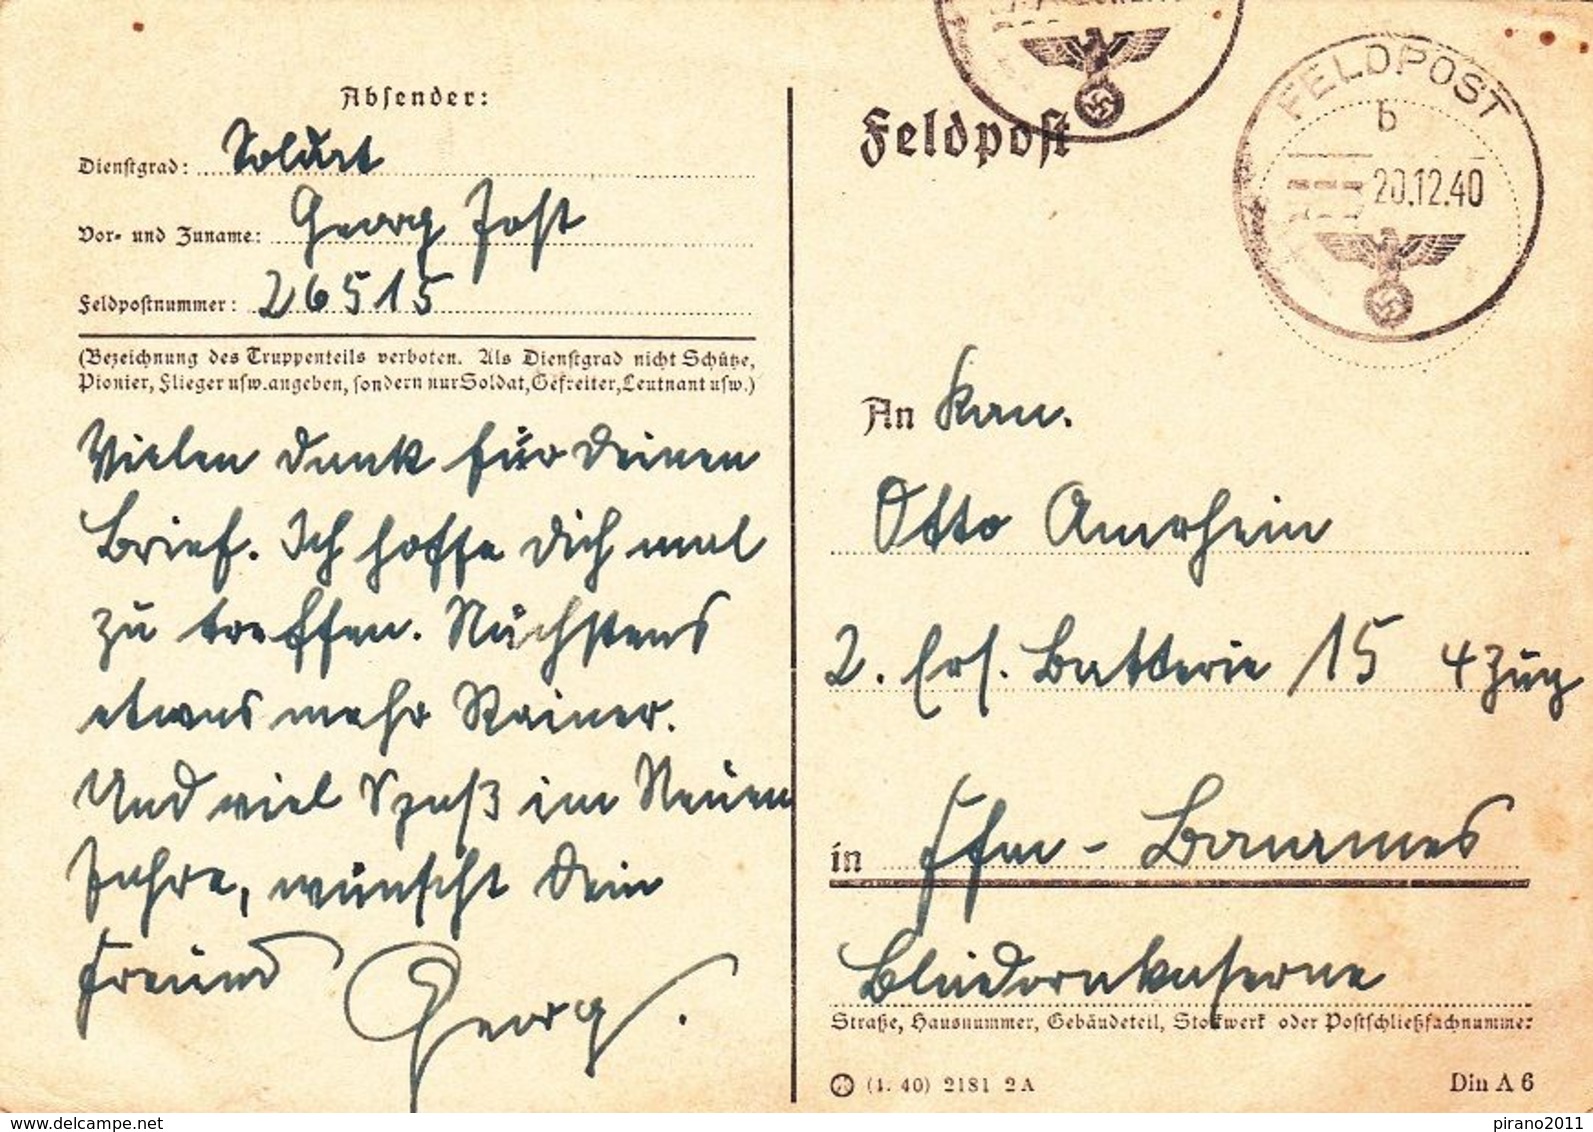 Absender:
Dienstgrad: Soldat
Vor- und Zuname: Georg Jost
Feldpostnummer: 26515
(Bezeichnung des Truppenteils verboten. Als Dienstgrad nicht Schütze,
Pionier, Flieger usw. angeben, sondern nur Soldat, Gefreiter, Leutnant usw.)
Vielen dank für deinen
Brief. Ich hoffe dich mal
zu treffen. Nächstens
etwas mehr Rainer.
Und viel Spaß im Neuen
Jahre, wünscht dein
Freund Georg.
Feldpost
FELDPOST
b
20.12.40
An Kan.
Otto Amrhein
2. Ers. Batterie 15 4 Zug
in Ffm - Bonames
Straße, Hausnummer, Gebäudeteil, Stockwerk oder Postschließfachnummer
(1. 40) 2181 2A
Din A 6
www.delcampe.net
pirano2011